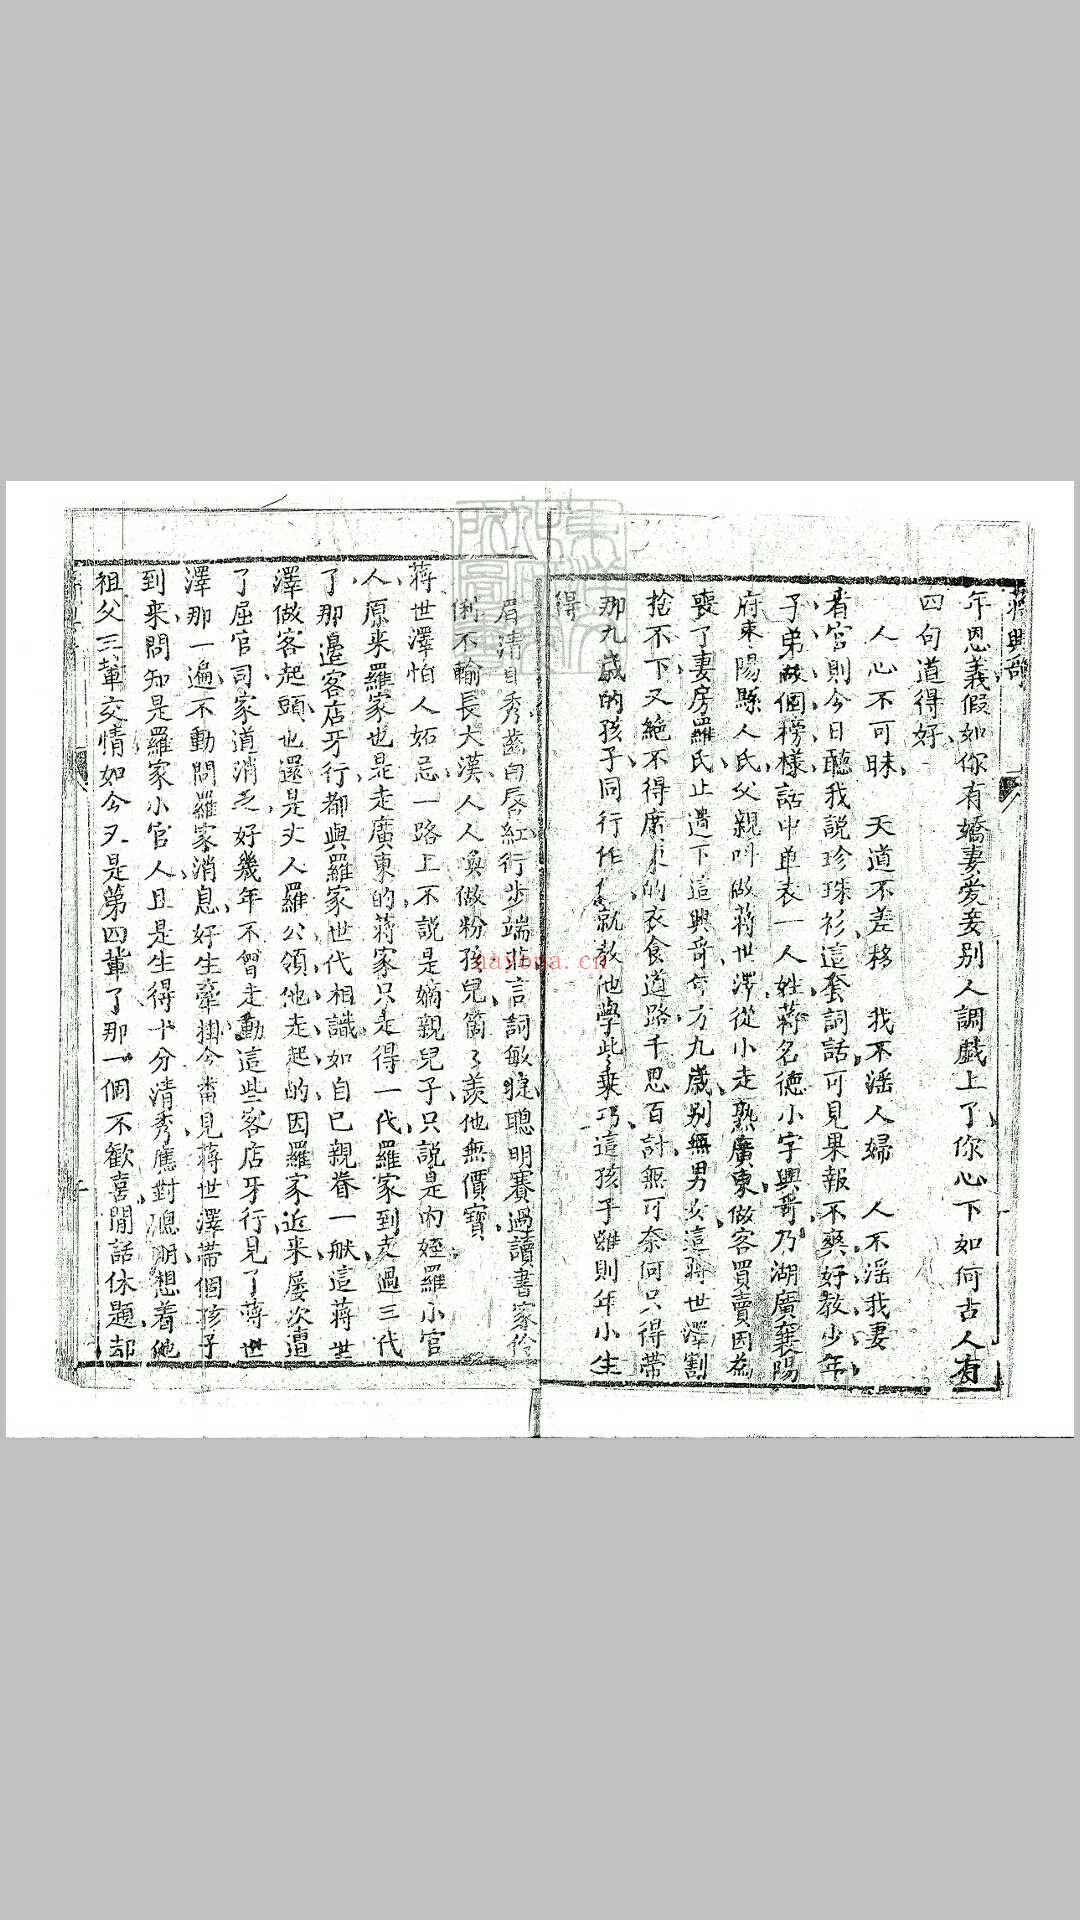 蔣興哥
年恩義假如你有嬌妻爱妾别人調戲上了你心下如何古人有
四句道得好
人心不可昧 天道不差移 我不淫人婦 人不淫我妻
看官則今日聽我說珍珠衫這套詞話可見果報不爽好教少年
子弟做個榜樣話中单表一人姓蔣名德小字興哥乃湖廣襄陽
府棗陽縣人氏父親叫做蔣世澤從小走熟廣東做客買賣因為
喪了妻房羅氏止遺下這興哥年方九歲别無男女這蔣世澤割
捨不下又絶不得廣東的衣食道路千思百計無可奈何只得帶
那九歲的孩子同行作伴就教他學些乘巧這孩子雖則年小生
得
眉清目秀齒白唇紅行步端莊言詞敏捷聰明賽過讀書家伶
俐不輸長大漢人人喚做粉孩兒箇々羡他無價寶
蔣世澤怕人妬忌一路上不說是嫡親兒子只說是内姪羅小官
人原来羅家也是走廣東的蔣家只走得一代羅家到走過三代
了那邉客店牙行都與羅家世代相識如自己親眷一般這蔣世
澤做客起頭也還是丈人羅公領他走起的因羅家近来屡次遭
了屈官司家道消乏好幾年不曾走動這些客店牙行見了蔣世
澤那一遍不動問羅家消息好生牽掛今畨見蔣世澤帶個孩子
到来問知是羅家小官人且是生得十分清秀應對聰明想着他
祖父三輩交情如今又是第四輩了那一個不歡喜閒話休題却
nayona.cn